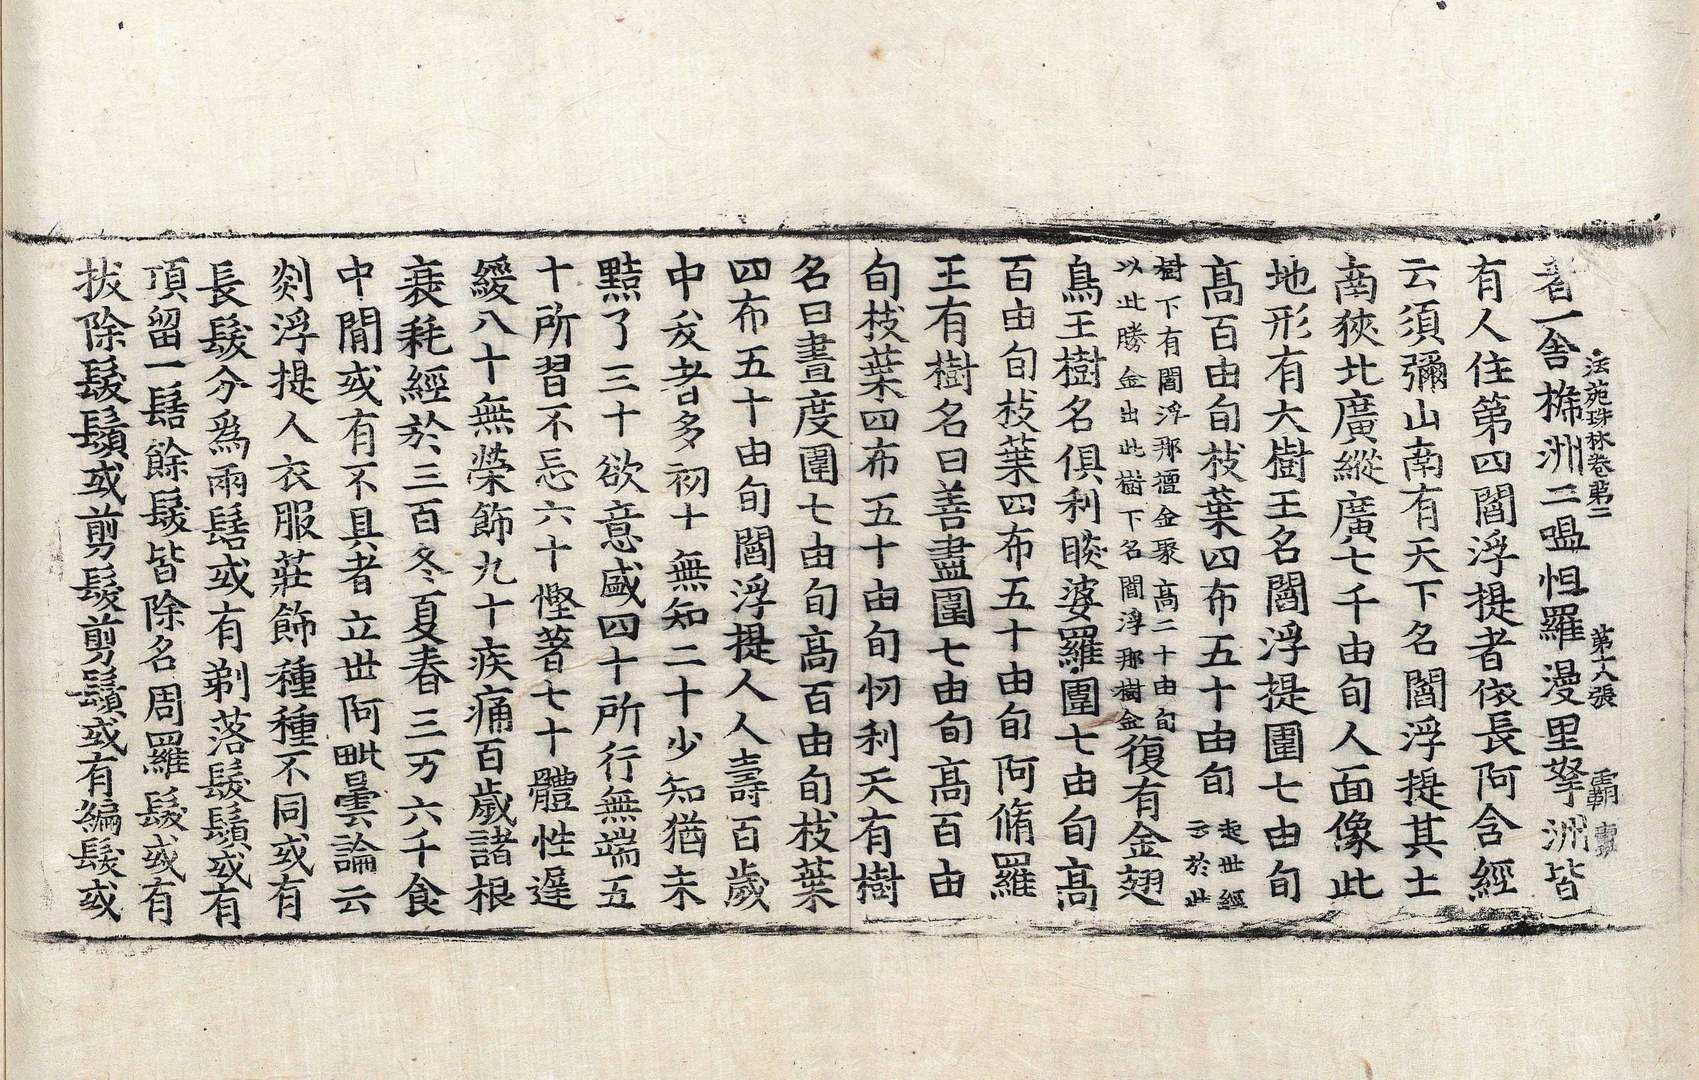 法苑珠林卷第二 第十八張 霸
者一舍櫛洲二嗢怛羅漫里拏洲皆
有人住第四閻浮提者依長阿含經
云須彌山南有天下名閻浮提其土
南狹北廣縱廣七千由旬人面像此
地形有大樹王名閻浮提圍七由旬
高百由旬枝葉四布五十由旬起世經
云於此
樹下有閻浮那檀金聚高二十由旬
以此勝金出此樹下名閻浮那樹金復有金翅
鳥王樹名俱利睒婆羅圍七由旬高
百由旬枝葉四布五十由旬阿脩羅
王有樹名曰善晝圍七由旬高百由
旬枝葉四布五十由旬忉利天有樹
名曰晝度圍七由旬高百由旬枝葉
四布五十由旬閻浮提人人壽百歲
中夭者多初十無知二十少知猶未
黠了三十欲意盛四十所行無端五
十所習不忘六十慳著七十體性遲
緩八十無榮飾九十疾痛百歲諸根
衰耗經於三百冬夏春三万六千食
中間或有不具者立世阿毗曇論云
剡浮提人衣服莊飾種種不同或有
長髮分爲兩髻或有剃落髮鬚或有
頂留一髻餘髮皆除名周羅髮或有
拔除髮鬚或剪髮剪鬚或有編髮或